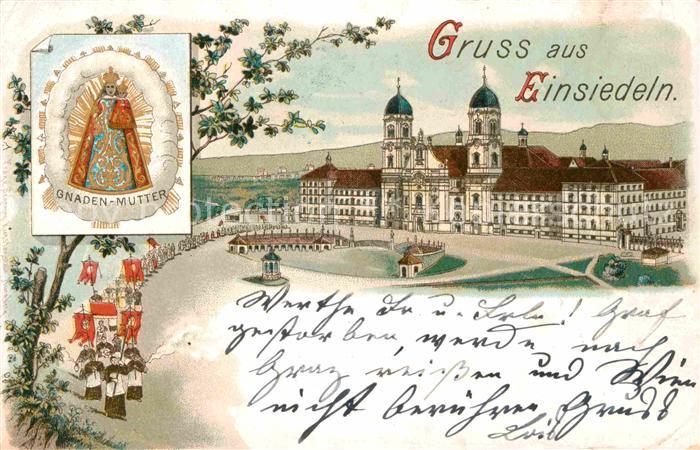 Gruss aus
Einsiedeln.
GNADEN-MUTTER
Werthe Fr u. Frln! Graf
gestorben, werde nach
Graz reißen und Wien
nicht berühren Gruss